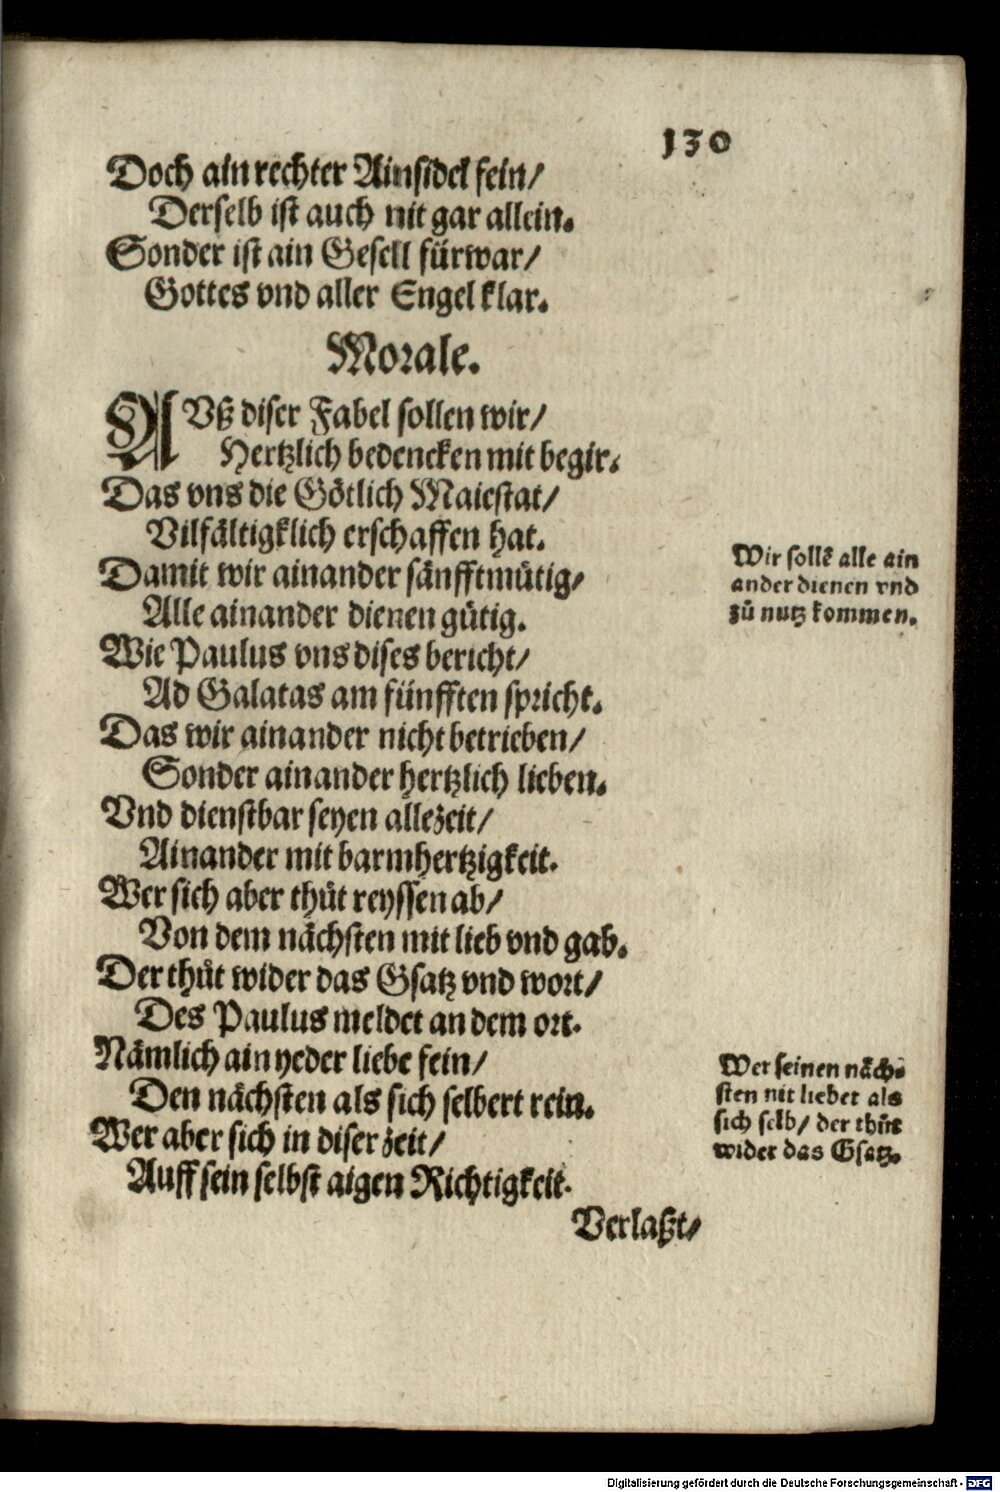 130
Doch ain rechter Ainsidel fein/
Derselb ist auch nit gar allein.
Sonder ist ain Gesell fürwar/
Gottes vnd aller Engel klar.
Morale.
AVß diser Fabel sollen wir/
Hertzlich bedencken mit begir.
Das vns die Götlich Maiestat/
Vilfältigklich erschaffen hat.
Damit wir ainander sänfftmütig/
Alle ainander dienen gütig.
Wie Paulus vns dises bericht/
Ad Galatas am fünfften spricht.
Das wir ainander nicht betrieben/
Sonder ainander hertzlich lieben.
Vnd dienstbar seyen allezeit/
Ainander mit barmhertzigkeit.
Wer sich aber thůt reyssen ab/
Von dem nächsten mit lieb vnd gab.
Der thůt wider das Gsatz vnd wort/
Des Paulus meldet an dem ort.
Nämlich ain yeder liebe fein/
Den nächsten als sich selbert rein.
Wer aber sich in diser zeit/
Auff sein selbst aigen Richtigkeit.
Verlaßt/
Wir sollē alle ain
ander dienen vnd
zů nutz kommen.
Wer seinen näch-
sten nit liebet als
sich selb/ der thůt
wider das Gsatz.
Digitalisierung gefördert durch die Deutsche Forschungsgemeinschaft - DFG